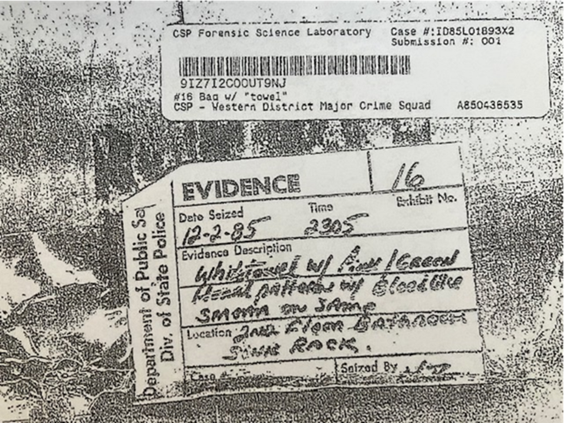 CSP Forensic Science Laboratory Case #:ID85L01893X2
Submission #: 001
9IZ7I2COOUT9NJ
#16 Bag w/ "towel"
CSP - Western District Major Crime Squad A850436535
Department of Public Sa
Div. of State Police
EVIDENCE 16
Exhibit No.
Date Seized Time
12-2-85 2305
Evidence Description
White towel w/ Pink/GREEN
Floral pattern w/ Bloodlike
SMEAR ON SAME
Location 2ND Floor BATHROOM
SINK RACK.
Case Seized By